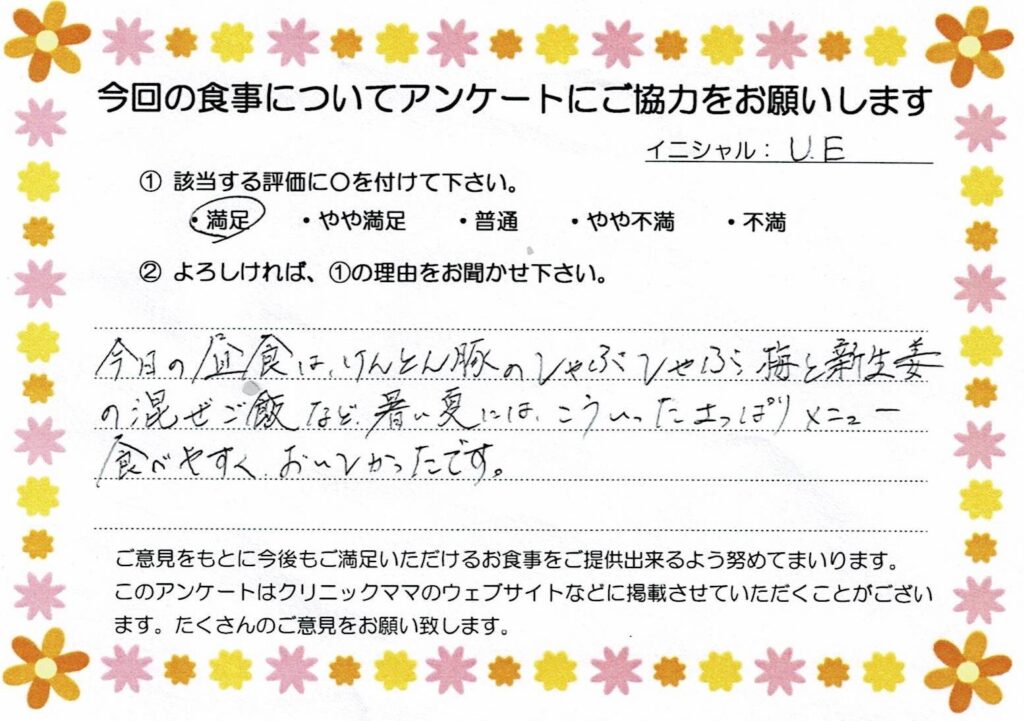 今回の食事についてアンケートにご協力をお願いします
イニシャル： U.E
① 該当する評価に〇を付けて下さい。
・満足 ・やや満足 ・普通 ・やや不満 ・不満
② よろしければ、①の理由をお聞かせ下さい。
今日の昼食は、けんとん豚のしゃぶしゃぶ、梅と新生姜
の混ぜご飯など、暑い夏には、こういったさっぱりメニュー
食べやすく、おいしかったです。
ご意見をもとに今後もご満足いただけるお食事をご提供出来るよう努めてまいります。
このアンケートはクリニックママのウェブサイトなどに掲載させていただくことがござい
ます。たくさんのご意見をお願い致します。